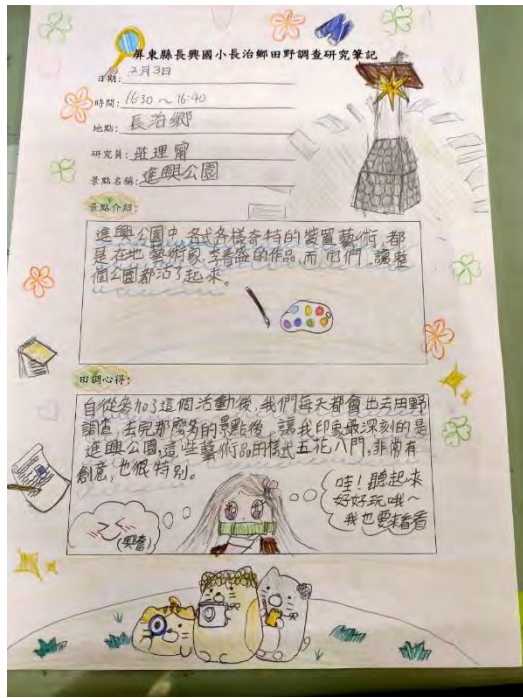 屏東縣長興國小長治鄉田野調查研究筆記
日期：2月3日
時間：16:30～16:40
地點：長治鄉
研究員：莊理甯
景點名稱：進興公園
景點介紹：
進興公園中,各式各樣奇特的裝置藝術,都
是在地藝術家,李善盛的作品,而它們,讓整
個公園都活了起來。
田調心得：
自從參加了這個活動後,我們每天都會出去田野
調查,去完那麼多的景點後,讓我印象最深刻的是
進興公園,這些藝術品的樣式五花八門,非常有
創意,也很特別。
(興奮)
哇！聽起來
好好玩哦～
我也要看看